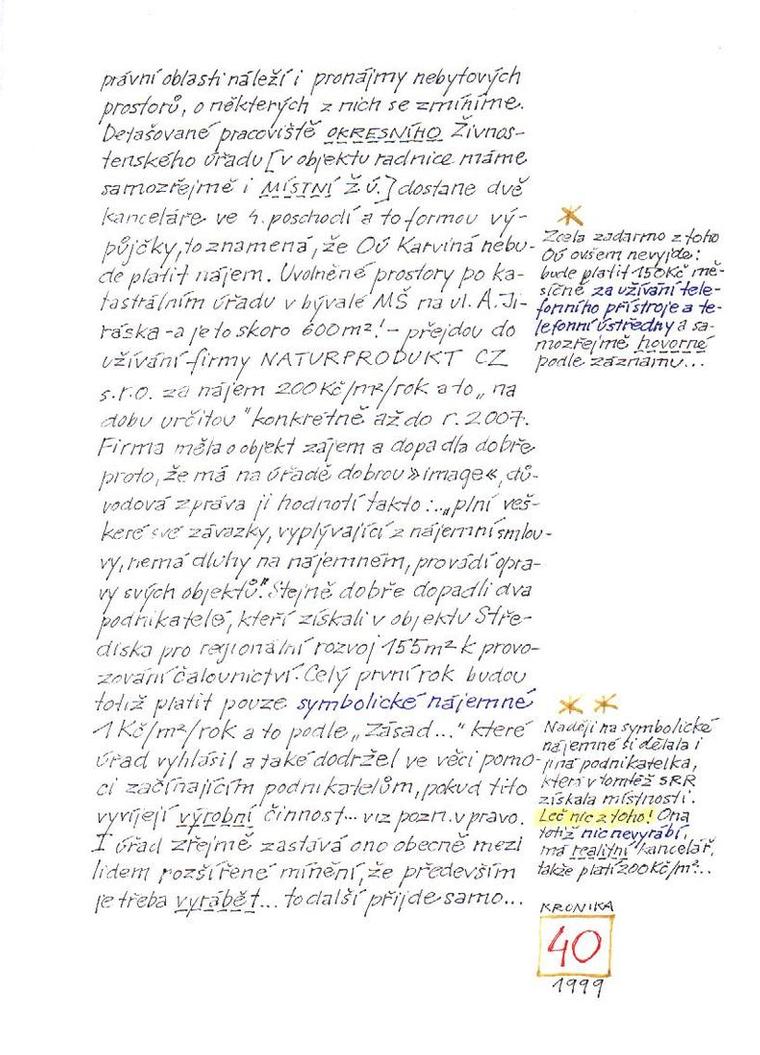 právní oblasti náleží i pronájmy nebytových
prostorů, o některých z nich se zmíníme.
Detašované pracoviště OKRESNÍHO Živnos-
tenského úřadu [v objektu radnice máme
samozřejmě i MÍSTNÍ Ž.Ú.] dostane dvě
kanceláře ve 4. poschodí a to formou vý-
půjčky, to znamená, že OÚ Karviná nebu-
de platit nájem. Uvolněné prostory po ka-
tastrálním úřadu v bývalé MŠ na ul. A. Ji-
ráska - a je to skoro 600m²! - přejdou do
užívání firmy NATURPRODUKT CZ
s.r.o. za nájem 200 Kč/m²/rok a to „na
dobu určitou" konkretně až do r. 2007.
Firma měla o objekt zájem a dopadla dobře
proto, že má na úřadě dobrou »image«, dů-
vodová zpráva ji hodnotí takto: „plní veš-
keré své závazky, vyplývající z nájemní smlou-
vy, nemá dluhy na nájemném, provádí opra-
vy svých objektů." Stejně dobře dopadli dva
podnikatelé, kteří získali v objektu Stře-
diska pro regionální rozvoj 155m² k provo-
zování čalounictví. Celý první rok budou
totiž platit pouze symbolické nájemné
1 Kč/m²/rok a to podle „Zásad..." které
úřad vyhlásil a také dodržel ve věci pomo-
ci začínajícím podnikatelům, pokud tito
vyvíjejí výrobní činnost... viz pozn. vpravo.
I úřad zřejmě zastává ono obecně mezi
lidem rozšířené mínění, že především
je třeba vyrábět... to další přijde samo...
*
Zcela zadarmo z toho
OÚ ovšem nevyjde:
bude platit 150Kč mě-
síčně za užívání tele-
fonního přístroje a te-
lefonní ústředny a sa-
mozřejmě hovorné
podle záznamu...
* *
Naději na symbolické
nájemné si dělala i
jiná podnikatelka,
která v tomtéž SRR
získala místnosti.
Leč nic z toho! Ona
totiž nic nevyrábí,
má realitní kancelář,
takže platí 200 Kč/m²...
KRONIKA
40
1999